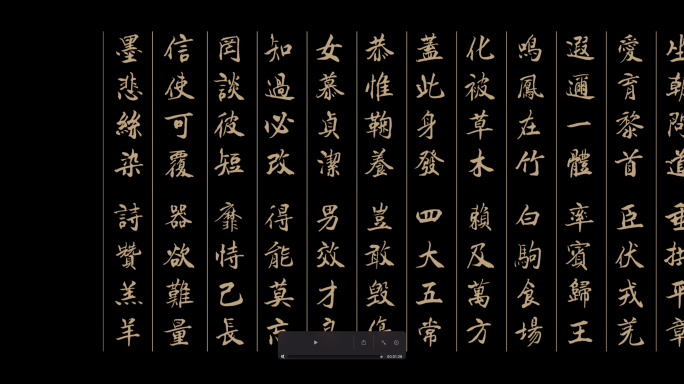 坐朝問道 垂拱平章
愛育黎首 臣伏戎羌
遐邇一體 率賓歸王
鳴鳳在竹 白駒食場
化被草木 賴及萬方
蓋此身發 四大五常
恭惟鞠養 豈敢毀傷
女慕貞潔 男效才良
知過必改 得能莫忘
罔談彼短 靡恃己長
信使可覆 器欲難量
墨悲絲染 詩贊羔羊
00:01:26